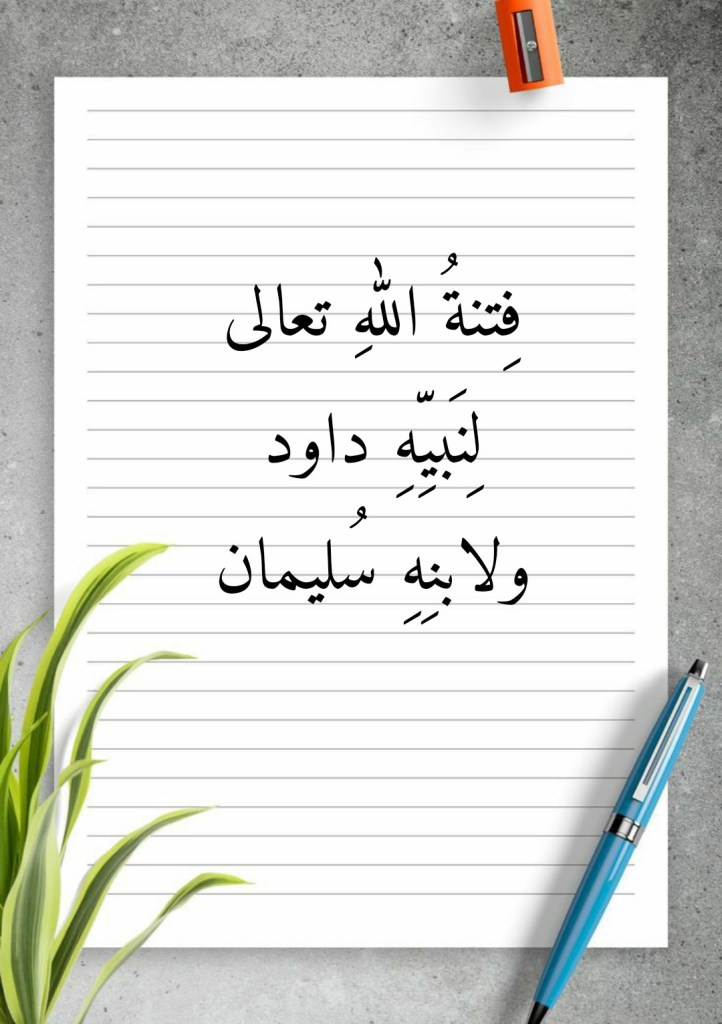 فِتنةُ اللّٰهِ تعالى
لِنَبيِّهِ داود
ولابنِهِ سُليمان